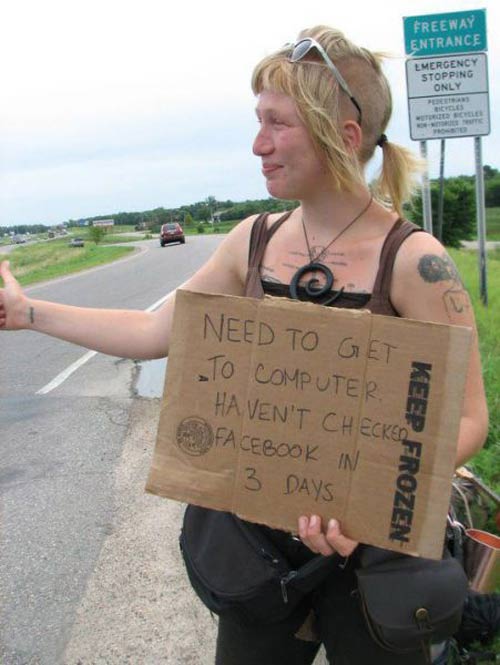 FREEWAY
ENTRANCE
EMERGENCY
STOPPING
ONLY
PEDESTRIANS
BICYCLES
MOTORIZED BICYCLES
NON-MOTORIZED TRAFFIC
PROHIBITED
NEED TO GET
TO COMPUTER.
HAVEN'T CHECKED
FACEBOOK IN
3 DAYS
KEEP FROZEN